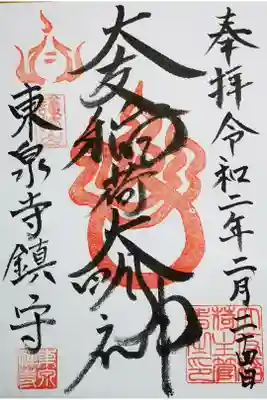 奉拝 令和二年二月二十四日
大友稲荷大明神
東泉寺鎮守